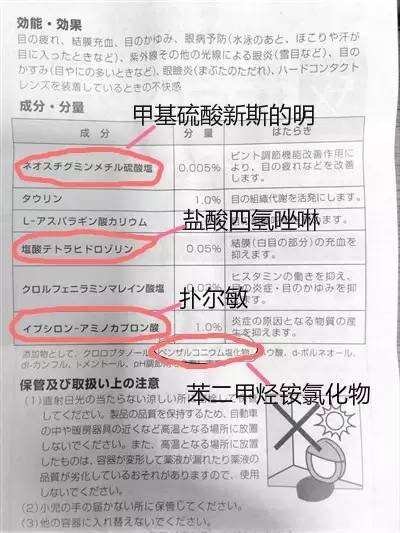 効能・効果
目の疲れ、結膜充血、目のかゆみ、眼病予防(水泳のあと、ほこりや汗が
目に入ったときなど)、紫外線その他の光線による眼炎(雪目など)、目の
かすみ(目やにの多いときなど)、眼瞼炎(まぶたのただれ)、ハードコンタクト
レンズを装着しているときの不快感
成分・分量
甲基硫酸新斯的明
成分 分量 はたらき
ネオスチグミンメチル硫酸塩 0.005% ピント調節機能改善作用により、目の疲れなどを改善します。
タウリン 1.0% 目の組織代謝を活発にします。
L-アスパラギン酸カリウム
盐酸四氢唑啉
塩酸テトラヒドロゾリン 0.05% 結膜(白目の部分)の充血を抑えます。
クロルフェニラミンマレイン酸塩 ヒスタミンの働きを抑え、目の炎症・目のかゆみを抑えます。
扑尔敏
イプシロン-アミノカプロン酸 1.0% 炎症の原因となる物質の産生を抑えます。
添加物として、クロロブタノール、ベンザルコニウム塩化物、ホウ酸、d-ボルネオール、
dl-カンフル、l-メントール、pH調節剤
苯二甲烃铵氯化物
保管及び取扱い上の注意
(1)直射日光の当たらない涼しい所に
してください。製品の品質を保持するため、自動車
の中や暖房器具の近くなど高温となる場所に放置
しないでください。また、高温となる場所に放置
したものは、容器が変形して薬液が漏れたり薬液
の品質が劣化しているおそれがありますので、使用
しないでください。
(2)小児の手の届かない所に保管してください。
(3)他の容器に入れ替えないでください。